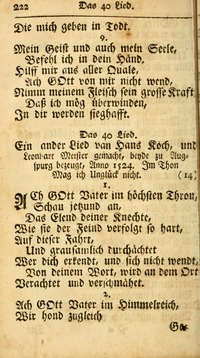 222 Das 40 Lied.
Die mich geben in Todt.
9.
Mein Geist und auch mein Seele,
Befehl ich in dein Händ.
Hilff mir aus aller Quale,
Ach GOtt von mir nicht wend,
Nimm meinem Fleisch sein grosse Kraft
Daß ich mög überwinden,
In dir werden sieghafft.
Das 40 Lied.
Ein ander Lied van Hans Koch, und
Leonhart Meister gemacht, beyde zu Aug-
spurg bezeugt, Anno 1524. Im Thon
Mag ich Unglück nicht. (14)
1.
Ach GOtt Vater im höchsten Thron,
Schau jetzund an,
Das Elend deiner Knechte,
Wie sie der Feind verfolgt so hart,
Auf dieser Fahrt,
Und grausamlich durchächtet
Wer dich erkendt, und sich nicht wendt,
Von deinem Wort, wird an dem Ort
Verachtet und verschmähet.
2.
Ach GOtt Vater im Himmelreich,
Wir sind zugleich